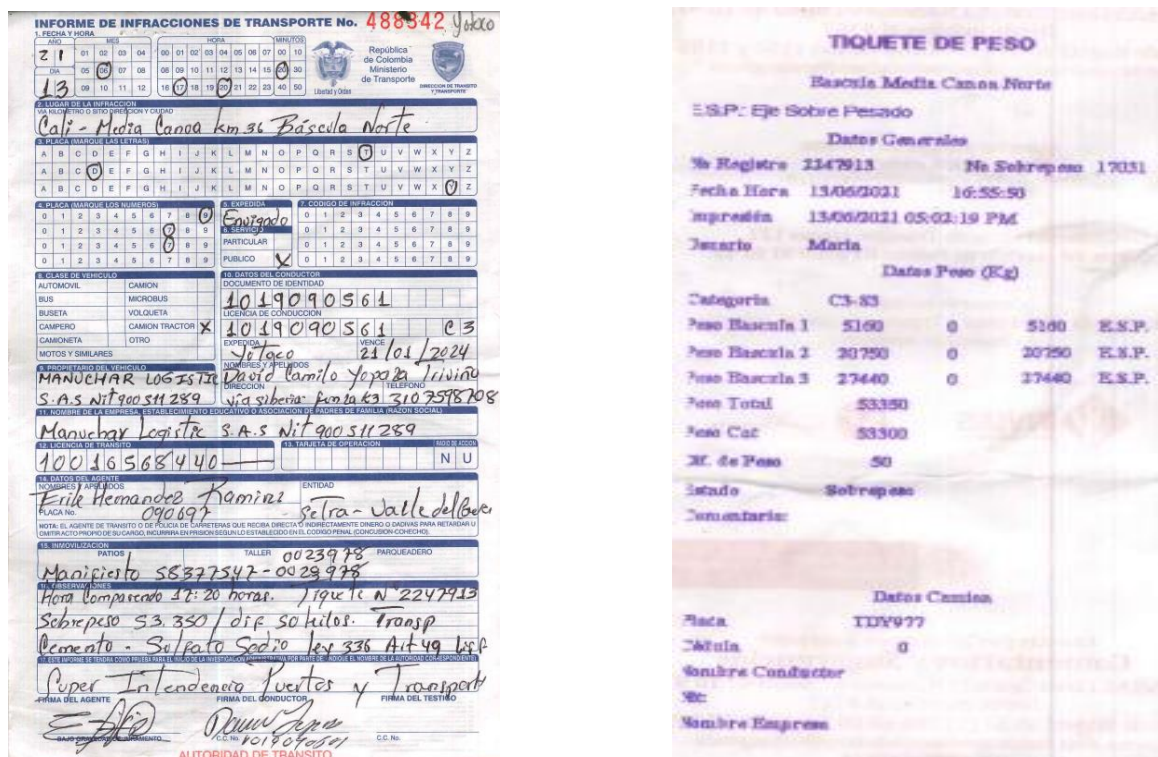 INFORME DE INFRACCIONES DE TRANSPORTE No. 488342 Yotoco
1. FECHA Y HORA
AÑO MES HORA MINUTOS
21 01 02 03 04 00 01 02 03 04 05 06 07 00 10
DIA 05 06 07 08 08 09 10 11 12 13 14 15 20 30
13 09 10 11 12 16 17 18 19 20 21 22 23 40 50
República de Colombia Ministerio de Transporte
Libertad y Orden
DIRECCION DE TRANSITO Y TRANSPORTE
2. LUGAR DE LA INFRACCION
VIA KILOMETRO O SITIO DIRECCION Y CIUDAD
Cali - Media Canoa km 36 Báscula Norte
3. PLACA (MARQUE LAS LETRAS)
A B C D E F G H I J K L M N O P Q R S T U V W X Y Z
A B C D E F G H I J K L M N O P Q R S T U V W X Y Z
A B C D E F G H I J K L M N O P Q R S T U V W X Y Z
4. PLACA (MARQUE LOS NUMEROS) 5. EXPEDIDA 7. CODIGO DE INFRACCION
0 1 2 3 4 5 6 7 8 9 Envigado 0 1 2 3 4 5 6 7 8 9
0 1 2 3 4 5 6 7 8 9 6. SERVICIO 0 1 2 3 4 5 6 7 8 9
0 1 2 3 4 5 6 7 8 9 PARTICULAR 0 1 2 3 4 5 6 7 8 9
0 1 2 3 4 5 6 7 8 9 PUBLICO X 0 1 2 3 4 5 6 7 8 9
8. CLASE DE VEHICULO
AUTOMOVIL CAMION
BUS MICROBUS
BUSETA VOLQUETA
CAMPERO CAMION TRACTOR X
CAMIONETA OTRO
MOTOS Y SIMILARES
10. DATOS DEL CONDUCTOR
DOCUMENTO DE IDENTIDAD
1019090561
LICENCIA DE CONDUCCION
1019090561 C3
EXPEDIDA VENCE
Yotoco 21/01/2024
NOMBRES Y APELLIDOS
David Camilo Yopaza Triviño
DIRECCION TELEFONO
via siberia funza k3 3107598708
9. PROPIETARIO DEL VEHICULO
MANUCHAR LOGISTIC
S.A.S Nit 900511289
11. NOMBRE DE LA EMPRESA, ESTABLECIMIENTO EDUCATIVO O ASOCIACION DE PADRES DE FAMILIA (RAZON SOCIAL)
Manuchar Logistic S.A.S Nit 900511289
12. LICENCIA DE TRANSITO 13. TARJETA DE OPERACION RADIO DE ACCION
10016568440 N U
14. DATOS DEL AGENTE
NOMBRES Y APELLIDOS ENTIDAD
Erik Hernandez Ramirez
PLACA No. 090697 Setra - Valle del
NOTA: EL AGENTE DE TRANSITO O DE POLICIA DE CARRETERAS QUE RECIBA DIRECTA O INDIRECTAMENTE DINERO O DADIVAS PARA RETARDAR U OMITIR ACTO PROPIO DE SU CARGO, INCURRIRA EN PRISION SEGUN LO ESTABLECIDO EN EL CODIGO PENAL (CONCUSION-COHECHO).
15. INMOVILIZACION
PATIOS TALLER 0023978 PARQUEADERO
Manifiesto 58377547-0023978
16. OBSERVACIONES
Hora Comparendo 17:20 horas. Tiquete N° 2247913
Sobrepeso 53.350 / dif 50 kilos. Transp
Cemento - Sulfato Sodio ley 336 Art 49
17. ESTE INFORME SE TENDRA COMO PRUEBA PARA EL INICIO DE LA INVESTIGACION ADMINISTRATIVA POR PARTE DE: (INDIQUE EL NOMBRE DE LA AUTORIDAD CORRESPONDIENTE)
Super Intendencia Puertos y Transporte
FIRMA DEL AGENTE FIRMA DEL CONDUCTOR FIRMA DEL TESTIGO
BAJO GRAVEDAD DE JURAMENTO C.C. No. C.C. No.
AUTORIDAD DE TRANSITO
TIQUETE DE PESO
Bascula Media Canoa Norte
E.S.P.: Eje Sobre Pesado
Datos Generales
No Registro 2247913 No Sobrepeso 17031
Fecha Hora 13/06/2021 16:55:50
Impresión 13/06/2021 05:02:19 PM
Usuario Maria
Datos Peso (Kg)
Categoria C3-S3
Peso Bascula 1 5160 0 5160 E.S.P.
Peso Bascula 2 20750 0 20750 E.S.P.
Peso Bascula 3 27440 0 27440 E.S.P.
Peso Total 53350
Peso Cat 53300
Dif. de Peso 50
Estado Sobrepeso
Comentario:
Datos Camion
Placa TDY977
Cédula 0
Nombre Conductor
Nit:
Nombre Empresa